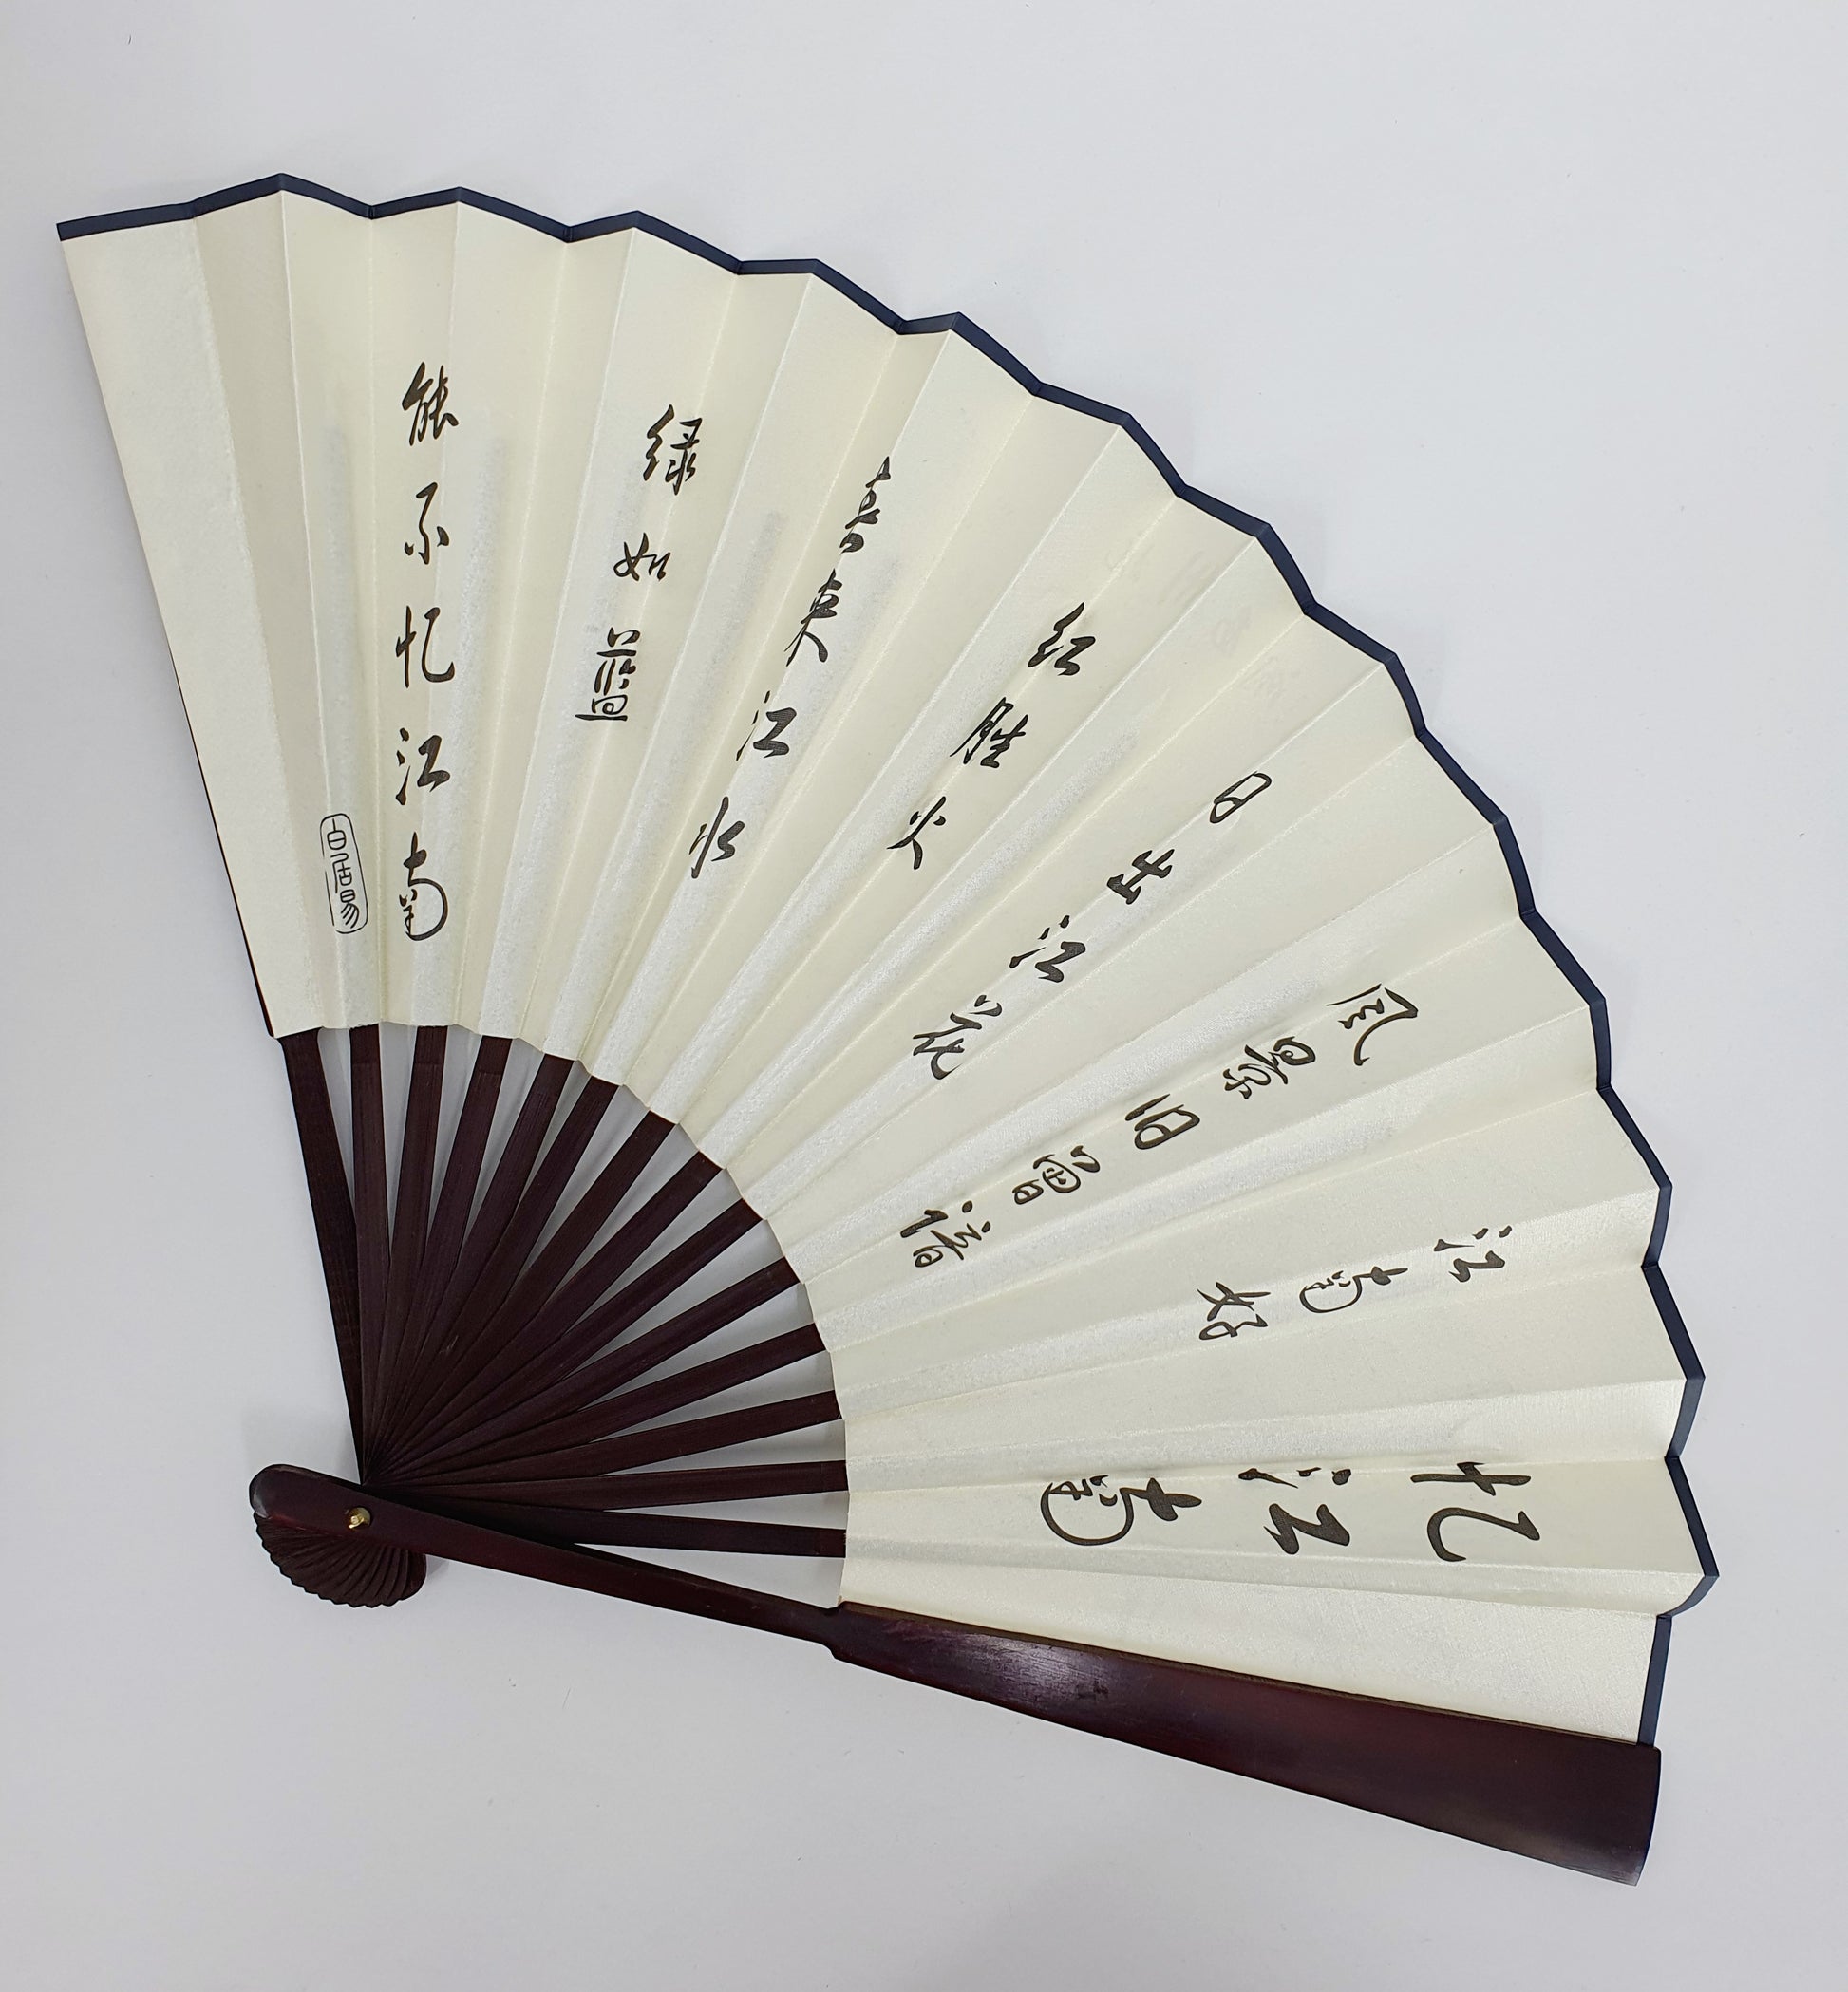 忆江南
江南好
风景旧曾谙
日出江花
红胜火
春来江水
绿如蓝
能不忆江南
白居易